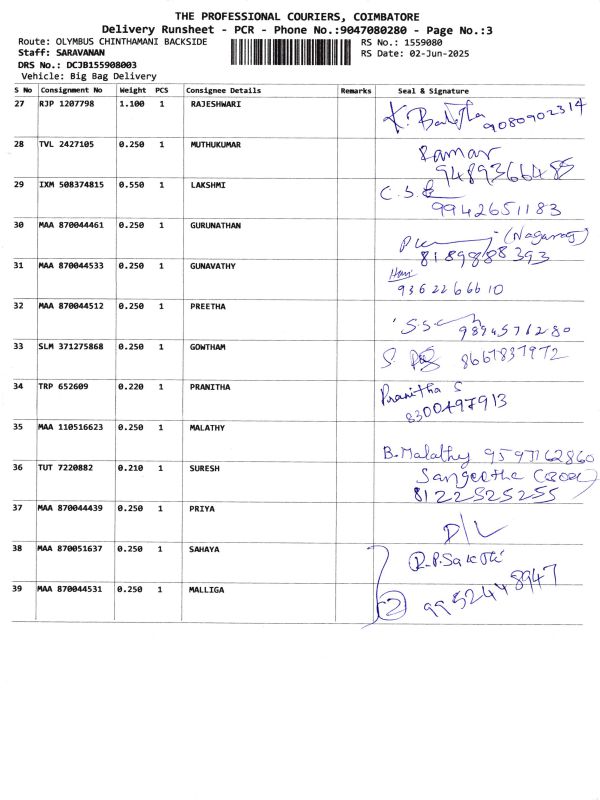 THE PROFESSIONAL COURIERS, COIMBATORE
Delivery Runsheet - PCR - Phone No.:9047080280 - Page No.:3
Route: OLYMBUS CHINTHAMANI BACKSIDE
RS No.: 1559080
Staff: SARAVANAN
RS Date: 02-Jun-2025
DRS No.: DCJB155908003
Vehicle: Big Bag Delivery
S No Consignment No Weight PCS Consignee Details Remarks Seal & Signature
27 RJP 1207798 1.100 1 RAJESHWARI
9080902314
28 TVL 2427105 0.250 1 MUTHUKUMAR Ramar
9489366485
29 IXM 508374815 0.550 1 LAKSHMI C.S
9942651183
30 MAA 870044461 0.250 1 GURUNATHAN (Nagaraj)
8189888393
31 MAA 870044533 0.250 1 GUNAVATHY
9362266610
32 MAA 870044512 0.250 1 PREETHA
9894571280
33 SLM 371275868 0.250 1 GOWTHAM S. 8667837972
34 TRP 652609 0.220 1 PRANITHA Pranitha S
8300497913
35 MAA 110516623 0.250 1 MALATHY
B.Malathy 9597162860
36 TUT 7220882 0.210 1 SURESH Sangeetha
8122525255
37 MAA 870044439 0.250 1 PRIYA D/L
38 MAA 870051637 0.250 1 SAHAYA R.P.Sakthi
39 MAA 870044531 0.250 1 MALLIGA 2 9952448947